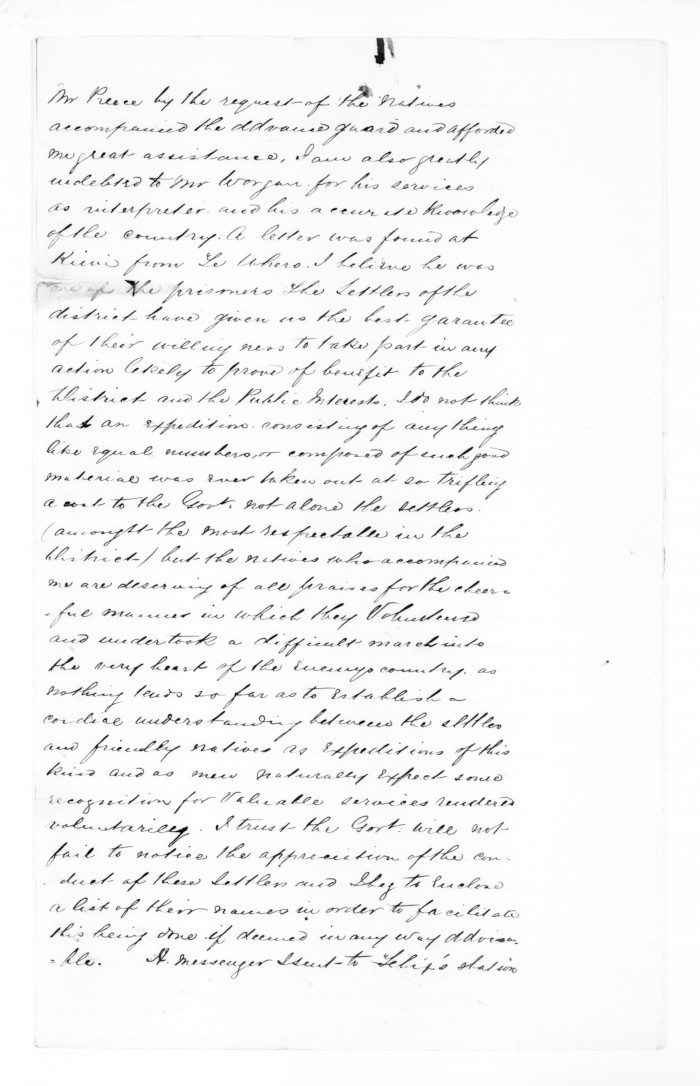 Mr Preece by the request of the Natives
accompanied the Advance guard and afforded
me great assistance, I am also greatly
indebted to Mr Worgan for his services
as interpreter and his accurate knowledge
of the country. A letter was found at
Kiwi from Te Whero. I believe he was
one of the prisoners The Settlers of the
district have given us the best garantee
of their willingness to take part in any
action likely to prove of benefit to the
District and the Public Interests. I do not think
that an expedition consisting of any thing
like equal numbers, or composed of such good
material was ever taken out at so trifling
a cost to the Govt. not alone the settlers.
(amongst the most respectable in the
District) but the natives who accompanied
me are deserving of all praises for the cheer=
=ful manner in which they Volunteered
and undertook a difficult march into
the very heart of the Enemys country. as
nothing tends so far as to Establish a
cordial understanding between the settlers
and friendly natives as Expeditions of this
kind and as men naturally Expect some
recognition for Valuable services rendered
voluntarilly. I trust the Govt: will not
fail to notice the appreciation of the con-
duct of these Settlers and I beg to Enclose
a list of their names in order to facilitate
this being done if deemed in any way Advisa-
=ble. A messenger I sent to station